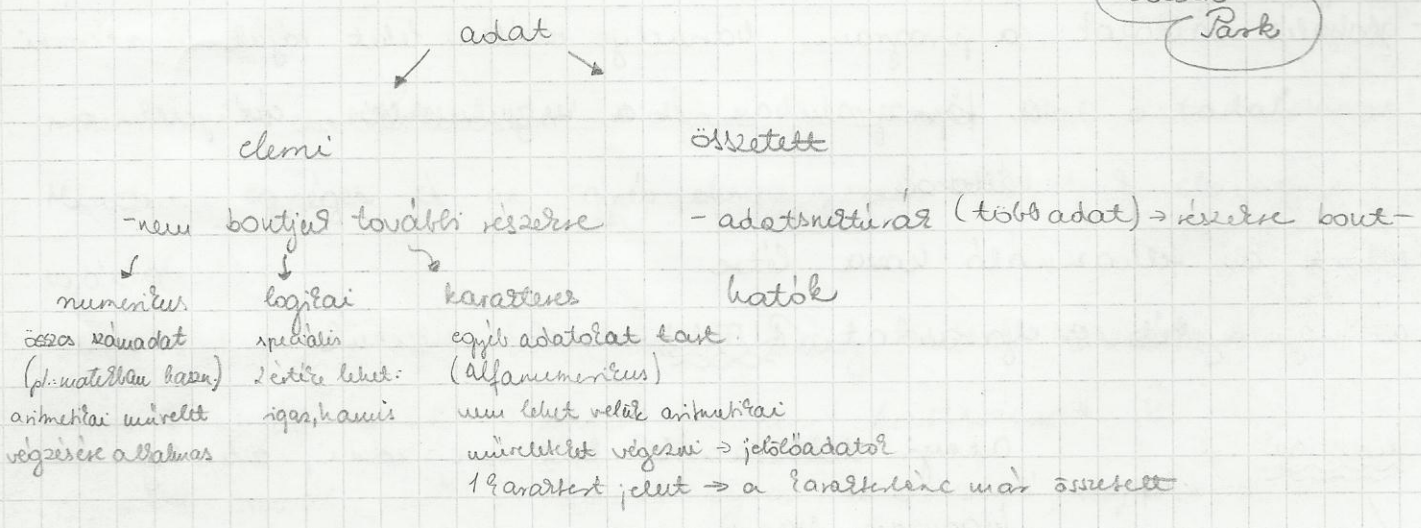 adat
Park
elemi
összetett
-nem bontjuk további részekre
- adatsruktúrák (több adat) → részekre bont-
hatók
numerikus
logikai
karakteres
összes számadat
(pl.: matekban haszn.)
aritmetikai művelet
végzésére alkalmas
speciális
2 értéke lehet:
igaz, hamis
egyéb adatokat tart.
(alfanumerikus)
nem lehet velük aritmetikai
műveleket végezni → jelölőadatok
1 karaktert jelent → a karakterlánc már összetett